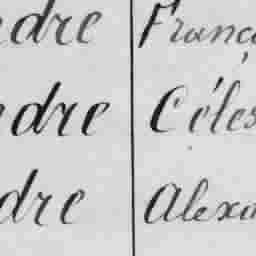 dre Franç
dre Céles
dre Alexa